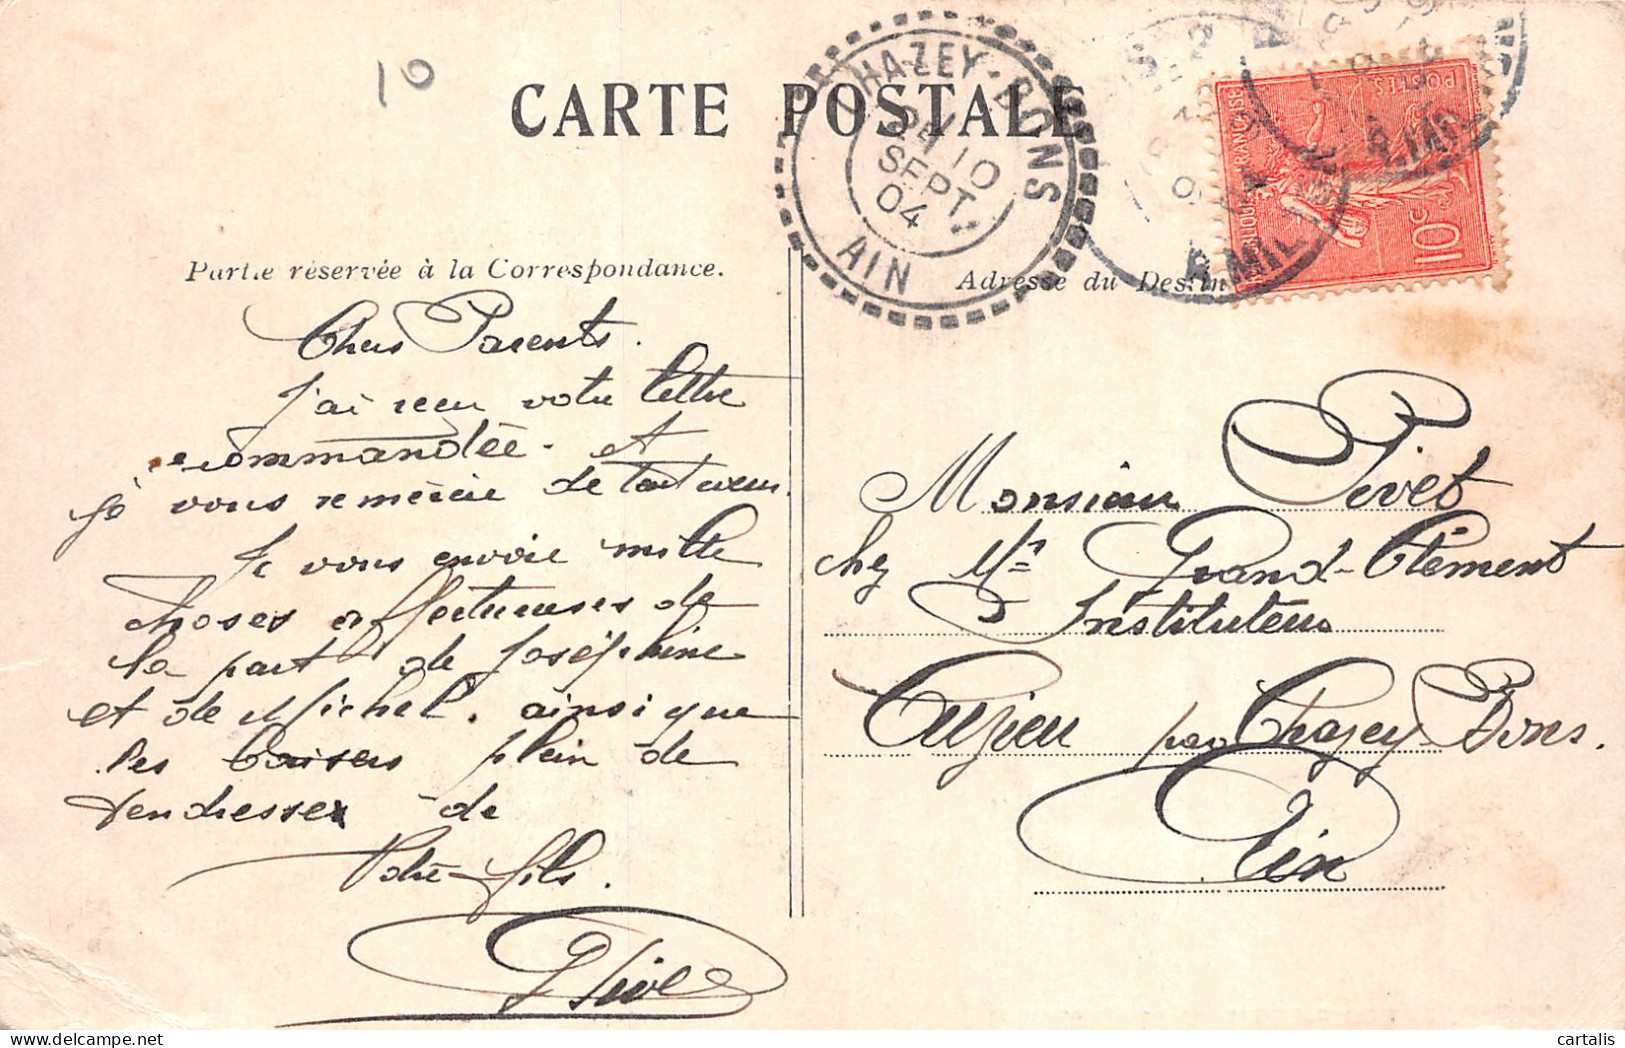 10
CARTE POSTALE
CHAZEY-BONS
10
SEPT.
04
AIN
POSTES
10c
Partie réservée à la Correspondance.
Adresse du Destin
Chers Parents.
J'ai reçu votre lettre
recommandée. et
je vous remercie de tout cœur.
Je vous envoie mille
choses affectueuses de
la part de Joséphine
et de Michel. ainsi que
les baisers plein de
tendresses de
Votre fils.
Monsieur Pivet
chez Mr Grand-Clément
Instituteur
Cuzieu par Chazey-Bons.
Ain
cartalis
delcampe.net